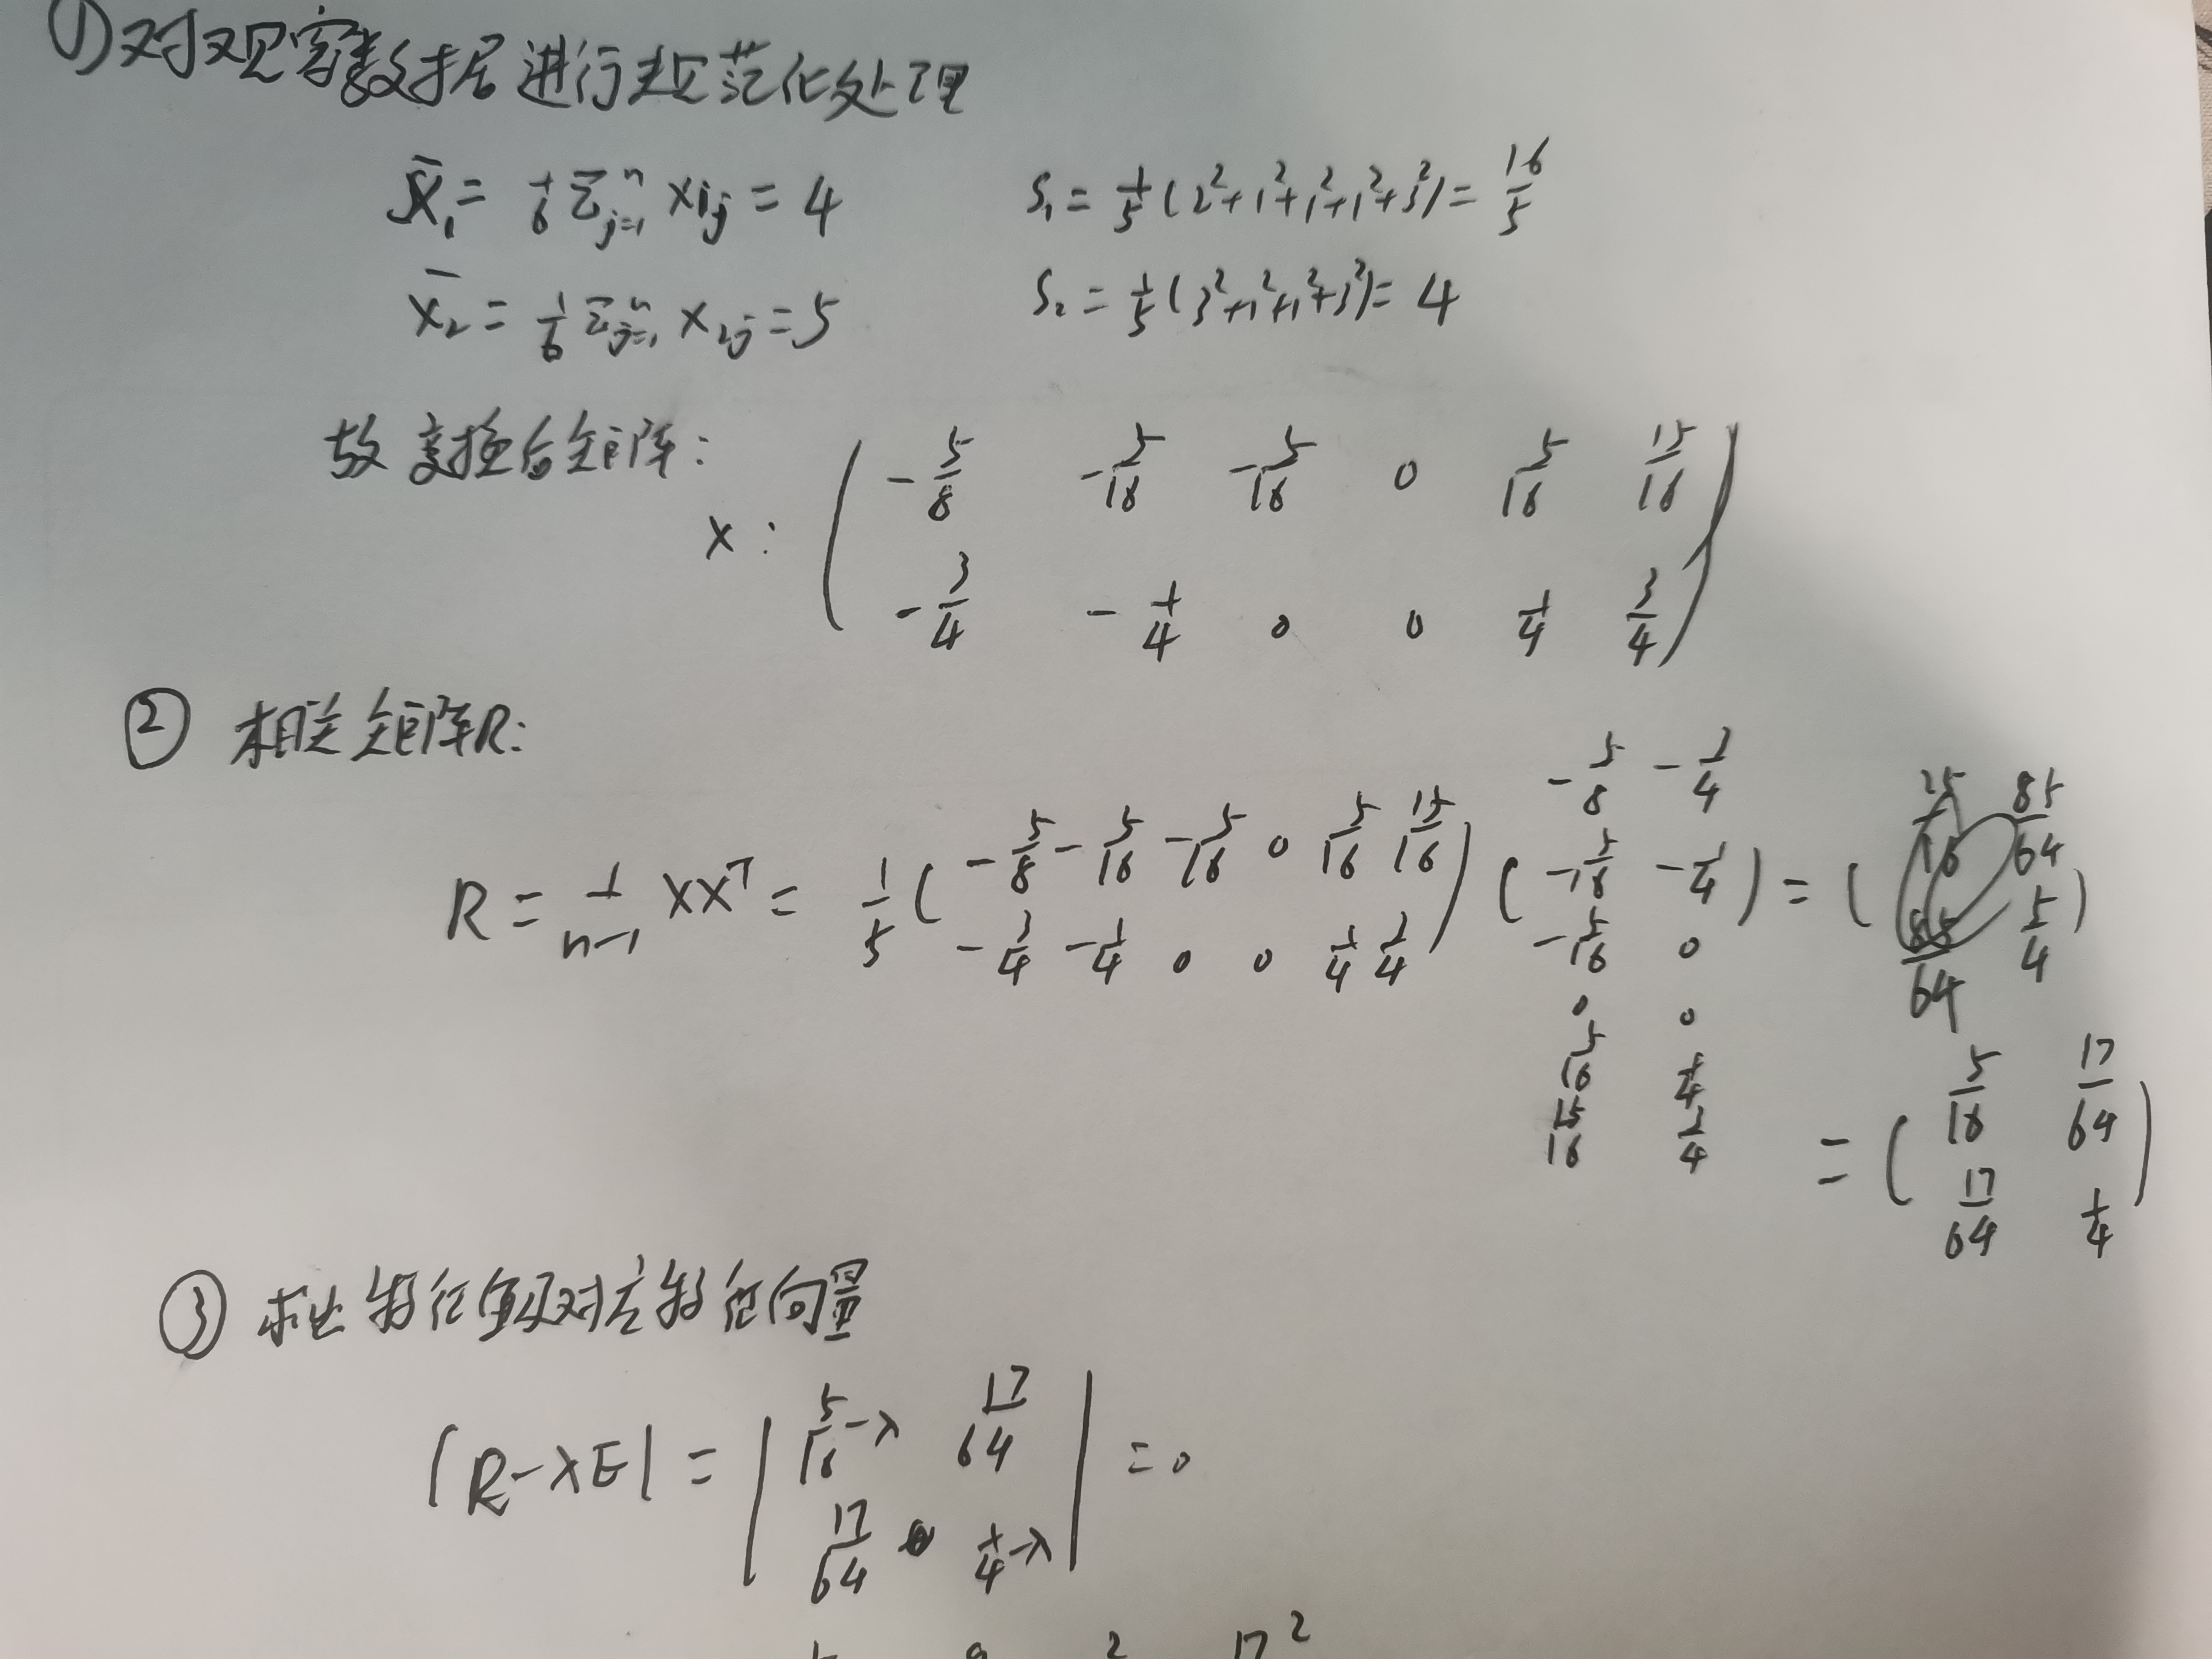 ①对观察数据进行规范化处理
x̄₁ = 1/6 Σⁿⱼ₌₁ x₁ⱼ = 4    S₁ = 1/5 (2²+1²+1²+1²+3²) = 16/5
x̄₂ = 1/6 Σⁿⱼ₌₁ x₂ⱼ = 5    S₂ = 1/5 (3²+1²+1²+3²) = 4
故变换后矩阵:
X: ( -5/8 -5/16 -5/16 0 5/16 15/16
-3/4 -1/4 0 0 1/4 3/4 )
② 相关矩阵R:
R = 1/(n-1) XXᵀ = 1/5 ( -5/8 -5/16 -5/16 0 5/16 15/16 ; -3/4 -1/4 0 0 1/4 3/4 ) ( -5/8 -3/4 ; -5/16 -1/4 ; -5/16 0 ; 0 0 ; 5/16 1/4 ; 15/16 3/4 ) = ( 25/16 85/64 ; 85/64 5/4 )
= ( 5/16 17/64 ; 17/64 1/4 )
③ 求出特征值及对应特征向量
|R-λE| = | 5/16-λ 17/64 ; 17/64 1/4-λ | = 0